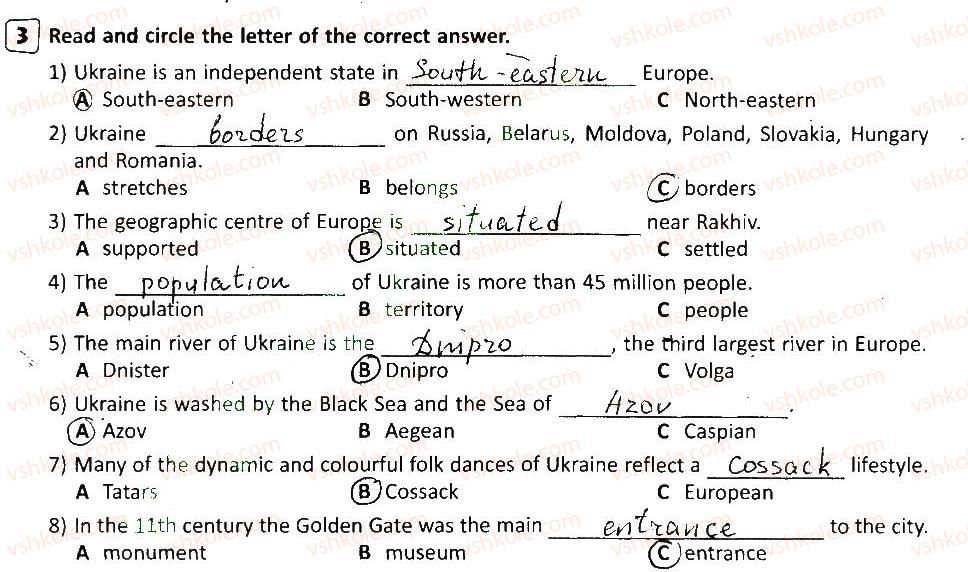 3 Read and circle the letter of the correct answer.
1) Ukraine is an independent state in South-eastern Europe.
A South-eastern B South-western C North-eastern
2) Ukraine borders on Russia, Belarus, Moldova, Poland, Slovakia, Hungary
and Romania.
A stretches B belongs C borders
3) The geographic centre of Europe is situated near Rakhiv.
A supported B situated C settled
4) The population of Ukraine is more than 45 million people.
A population B territory C people
5) The main river of Ukraine is the Dnipro, the third largest river in Europe.
A Dnister B Dnipro C Volga
6) Ukraine is washed by the Black Sea and the Sea of Azov.
A Azov B Aegean C Caspian
7) Many of the dynamic and colourful folk dances of Ukraine reflect a Cossack lifestyle.
A Tatars B Cossack C European
8) In the 11th century the Golden Gate was the main entrance to the city.
A monument B museum C entrance
vshkole.com